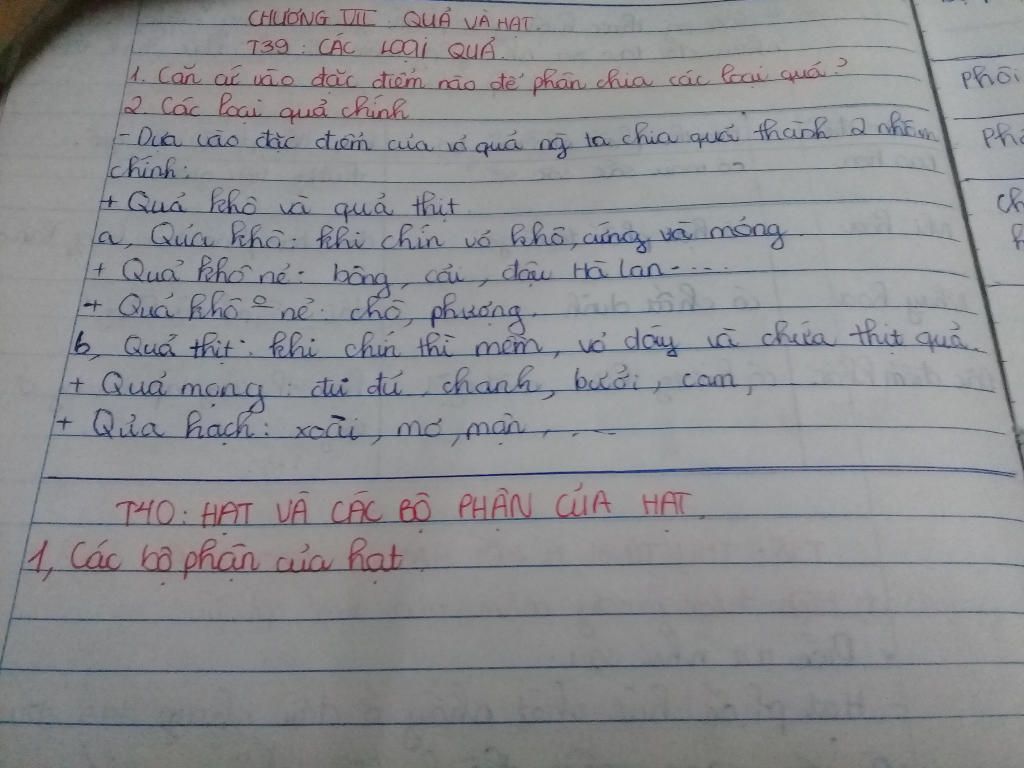 CHƯƠNG VII QUẢ VÀ HẠT
T39: CÁC LOẠI QUẢ.
1. Căn cứ vào đặc điểm nào để phân chia các loại quả?
2. Các loại quả chính
- Dựa vào đặc điểm của vỏ quả ng ta chia quả thành 2 nhóm
chính:
+ Quả khô và quả thịt
a, Qủa khô: khi chín vỏ khô, cứng, và mỏng
+ Quả khô nẻ: bông, cải, đậu Hà Lan.....
+ Quả khô o nẻ: chò, phượng.
b, Quả thịt: khi chín thì mềm, vỏ dày và chứa thịt quả.
+ Quả mọng: đu đủ, chanh, bưởi, cam,
+ Qủa hạch: xoài, mơ, mận, ....
T40: HẠT VÀ CÁC BỘ PHẬN CỦA HẠT.
1, Các bộ phận của hạt
Phôi